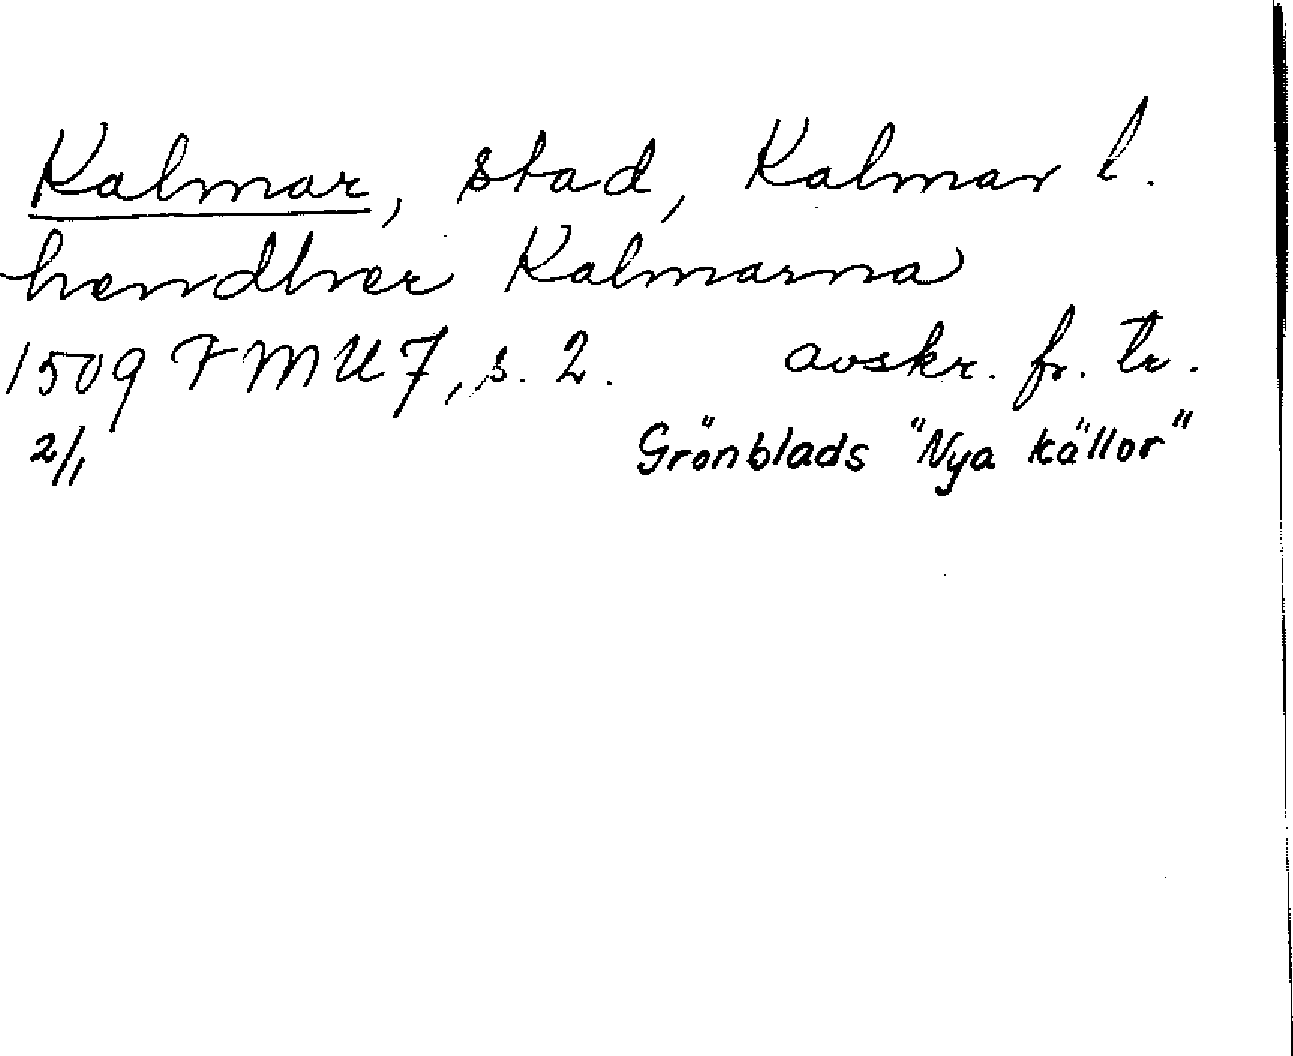 Kalmar, stad, Kalmar l.
hendhver Kalmarna
1509 FMU 7, s. 2. avskr. fr. tr.
2/1 Grönblads "Nya källor"